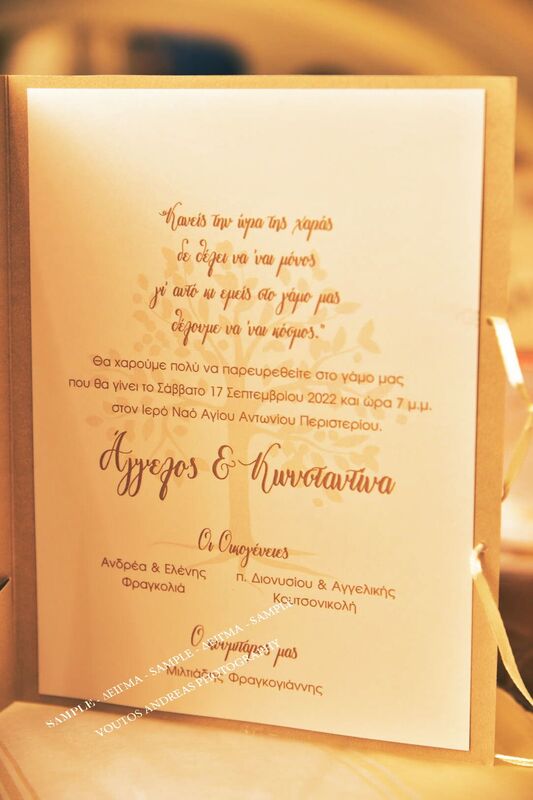 "Κανείς την ώρα της χαράς
δε θέλει να 'ναι μόνος
γι' αυτό κι εμείς στο γάμο μας
θέλουμε να 'ναι κόσμος."
Θα χαρούμε πολύ να παρευρεθείτε στο γάμο μας
που θα γίνει το Σάββατο 17 Σεπτεμβρίου 2022 και ώρα 7 μ.μ.
στον Ιερό Ναό Αγίου Αντωνίου Περιστερίου.
Άγγελος & Κωνσταντίνα
Οι Οικογένειες
Ανδρέα & Ελένης
Φραγκολιά
π. Διονυσίου & Αγγελικής
Κουτσονικολή
Ο κουμπάρος μας
Μιλτιάδης Φραγκογιάννης
SAMPLE - ΔΕΙΓΜΑ - SAMPLE - ΔΕΙΓΜΑ - SAMPLE
VOUTOS ANDREAS PHOTOGRAPHY